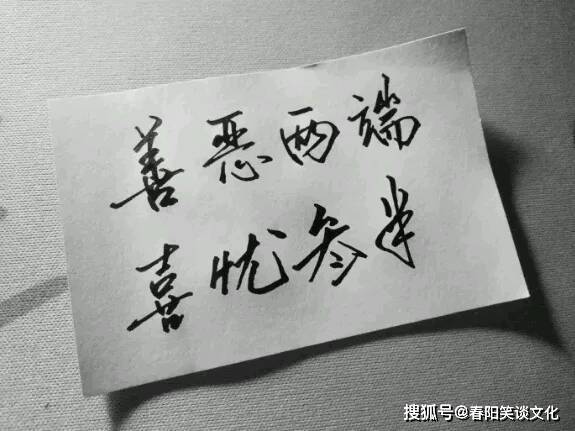 善恶两端
喜忧参半
搜狐号@春阳笑谈文化